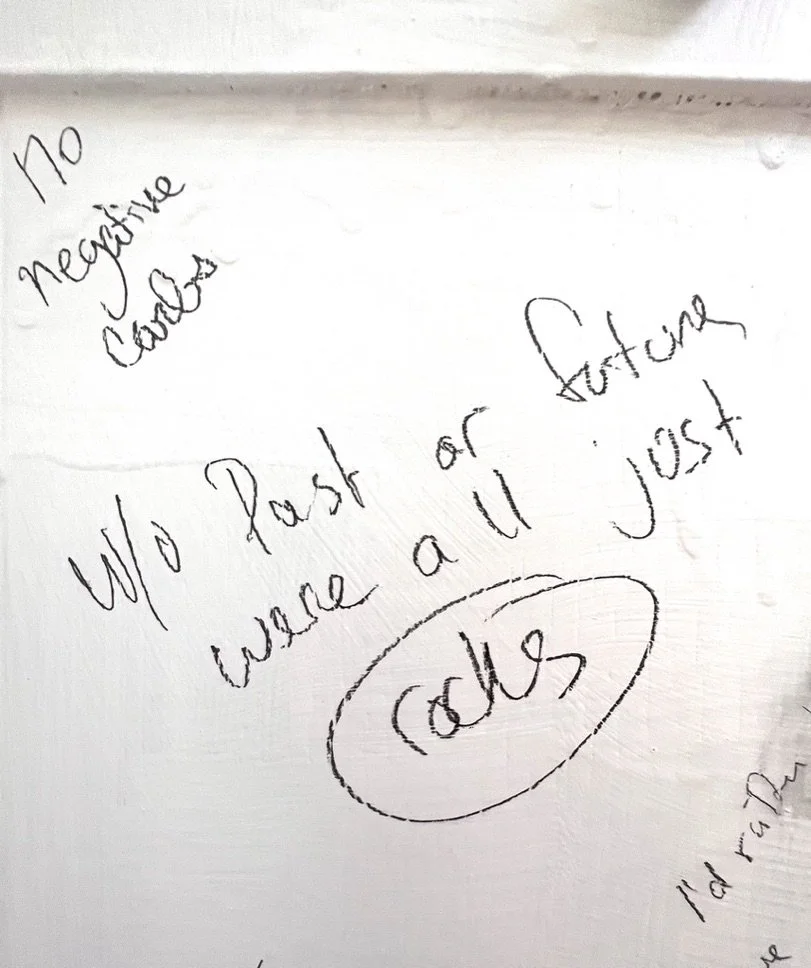 no
negative
carbs
w/o Past or future
were all just
rocks
I'd rather